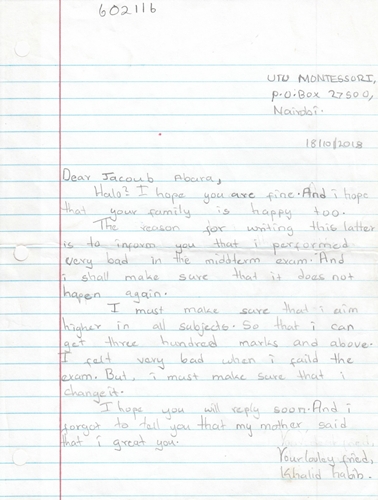 602116
UTU MONTESSORI,
P.O.Box 27500,
Nairobi.
18/10/2018
Dear Jacoub Abara,
Halo? I hope you are fine. And i hope
that your family is happy too.
The reason for writing this latter
is to inform you that i performed
very bad in the middterm exam. And
i shall make sure that it does not
hapen again.
I must make sure that i aim
higher in all subjects. So that i can
get three hundred marks and above.
I felt very bad when i faild the
exam. But, i must make sure that i
change it.
I hope you will reply soon. And i
forgot to tell you that my mother, said
that i great you.
Your loley fried,
Khalid habib.